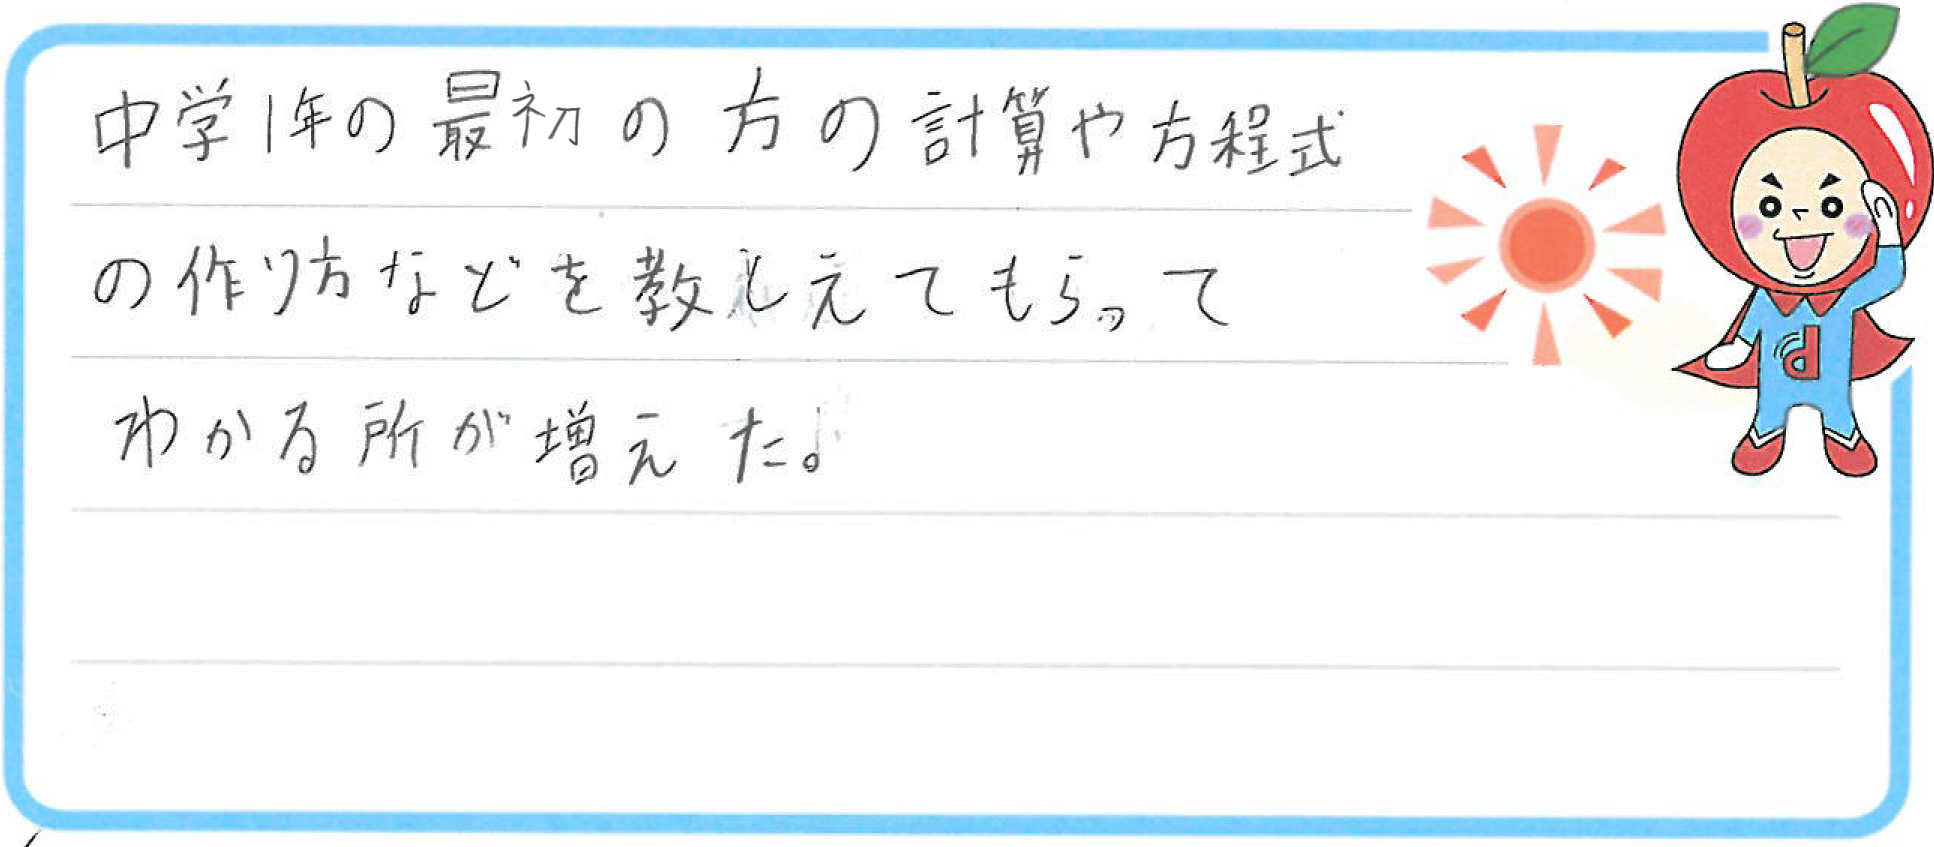 中学1年の最初の方の計算や方程式
の作り方などを教しえてもらって
わかる所が増えた。
d